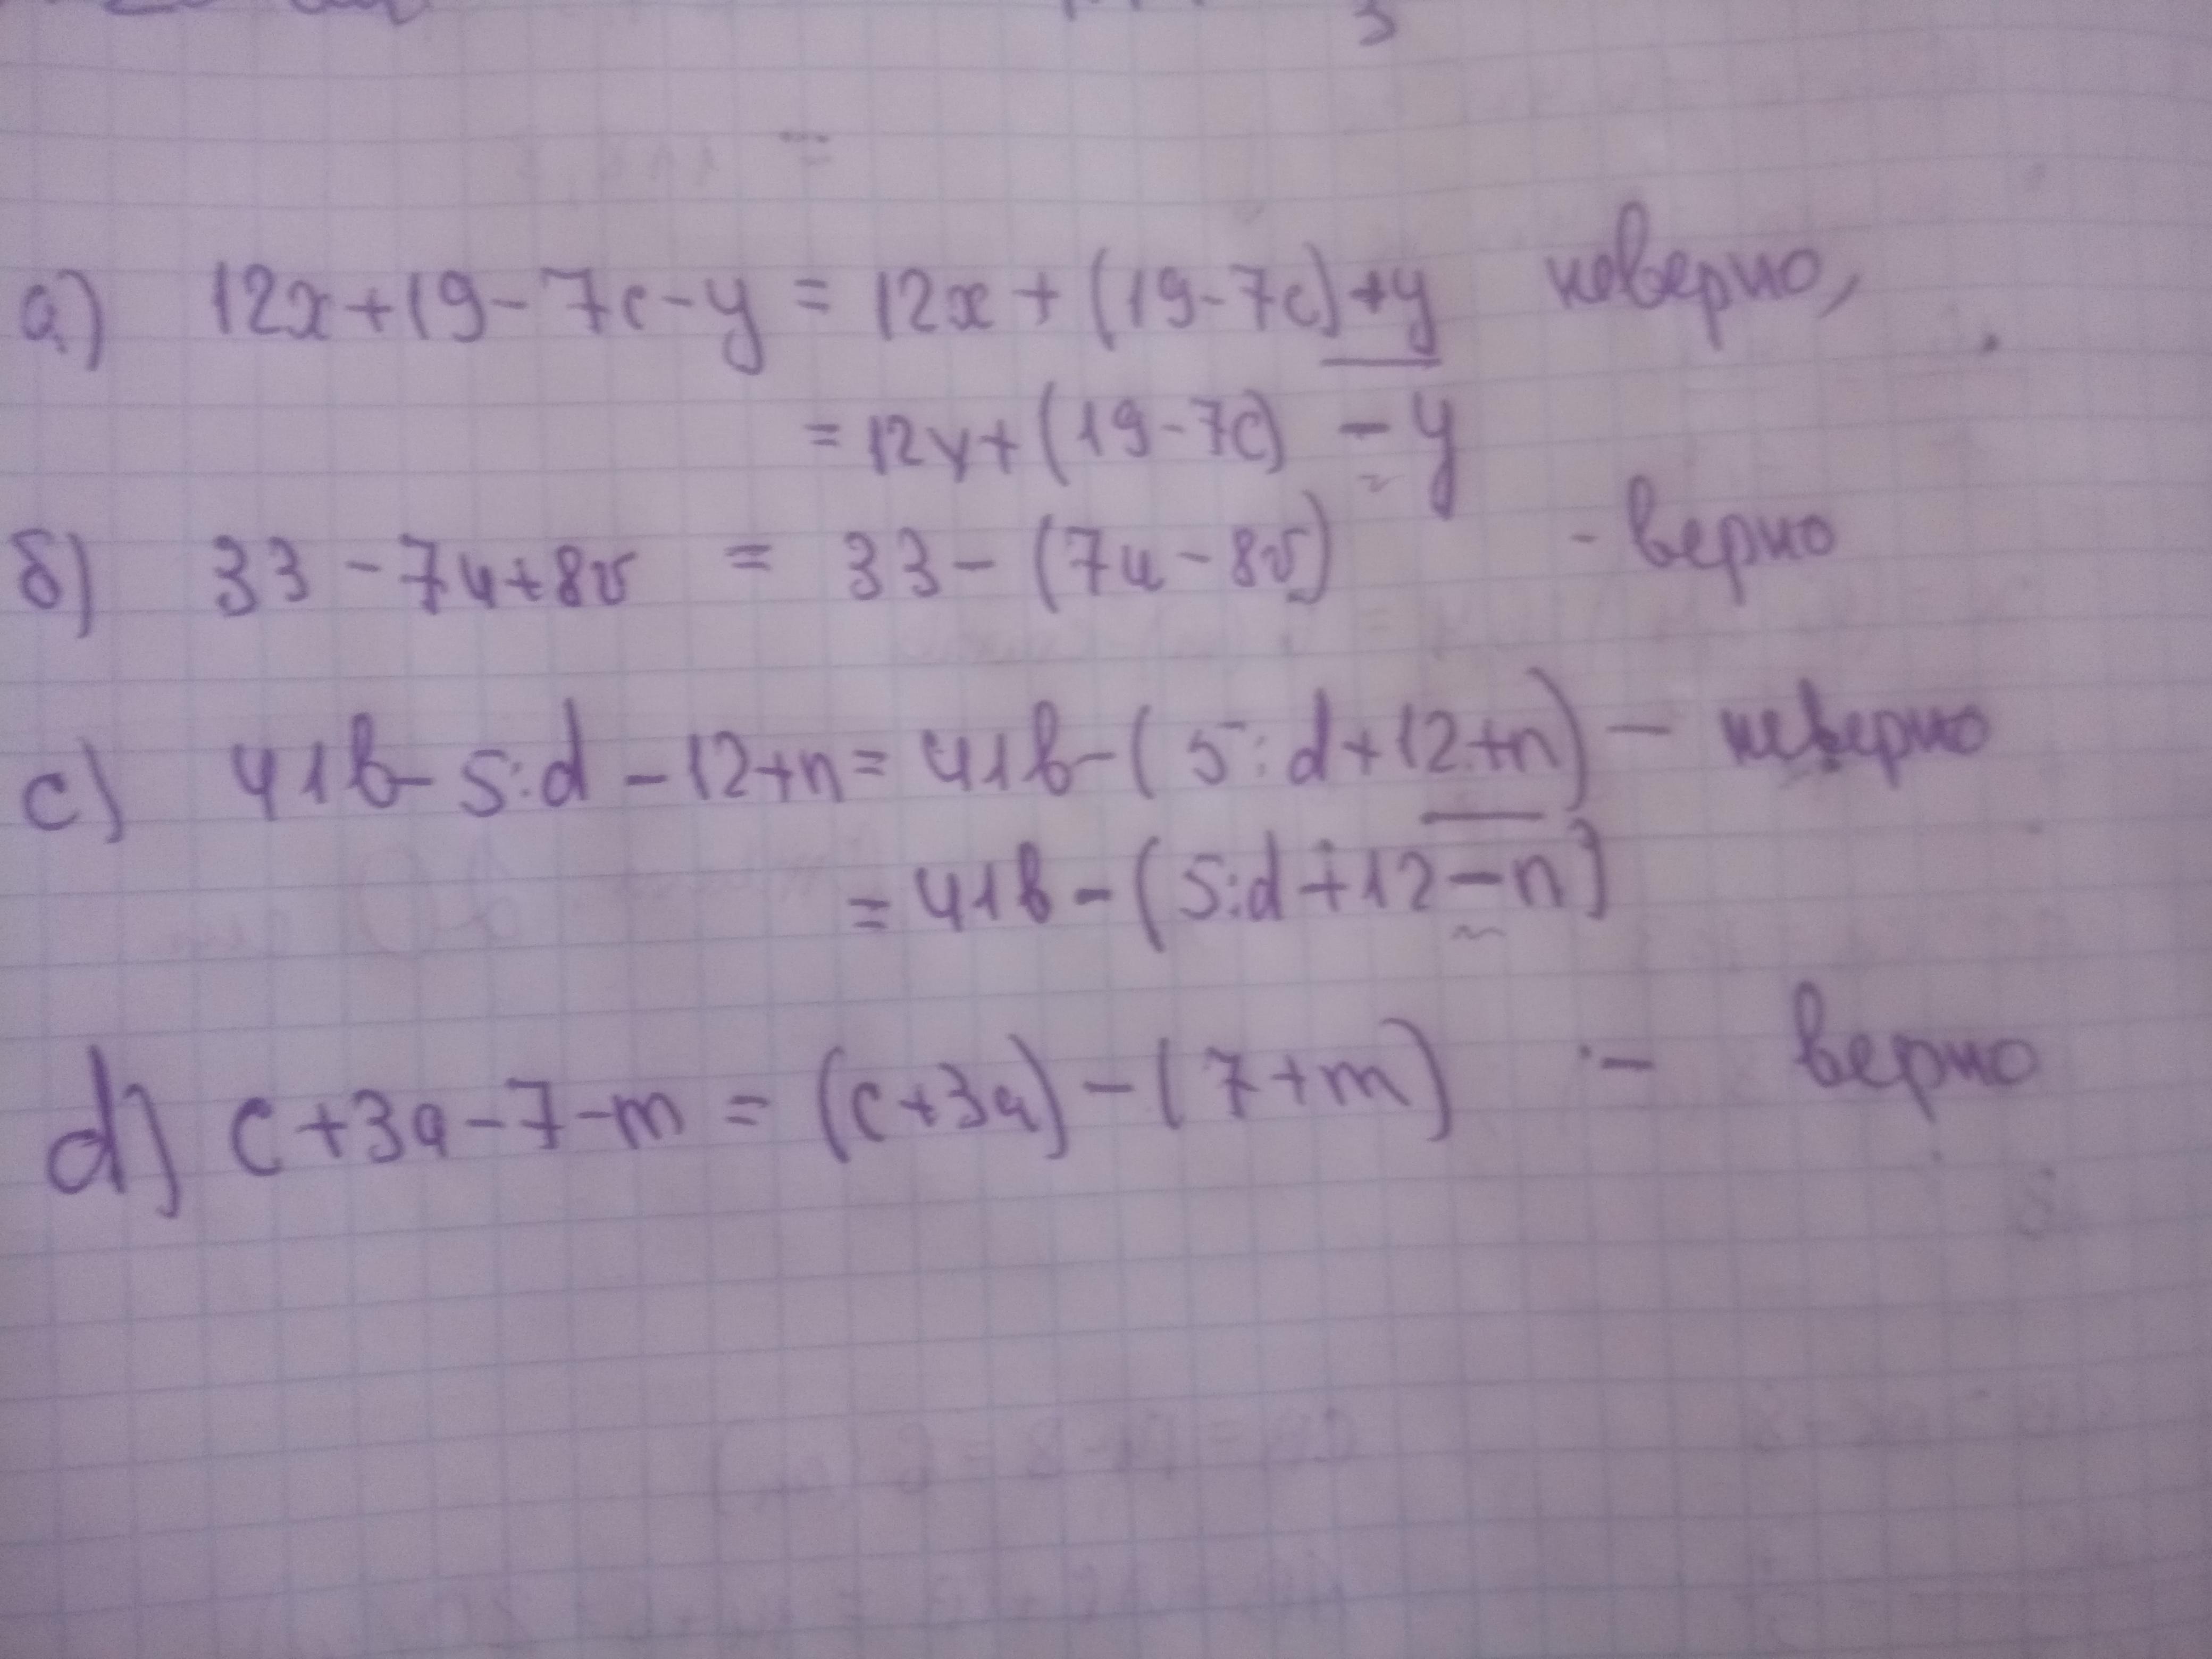 3
а) 12x+19-7c-y = 12x+(19-7c)+y неверно,
= 12y+(19-7c) -y
б) 33-7u+8v = 33-(7u-8v) - верно
c) 41b-5:d-12+n=41b-(5:d+12+n) - неверно
=41b-(5:d+12-n)
d) c+3a-7-m=(c+3a)-(7+m) - верно